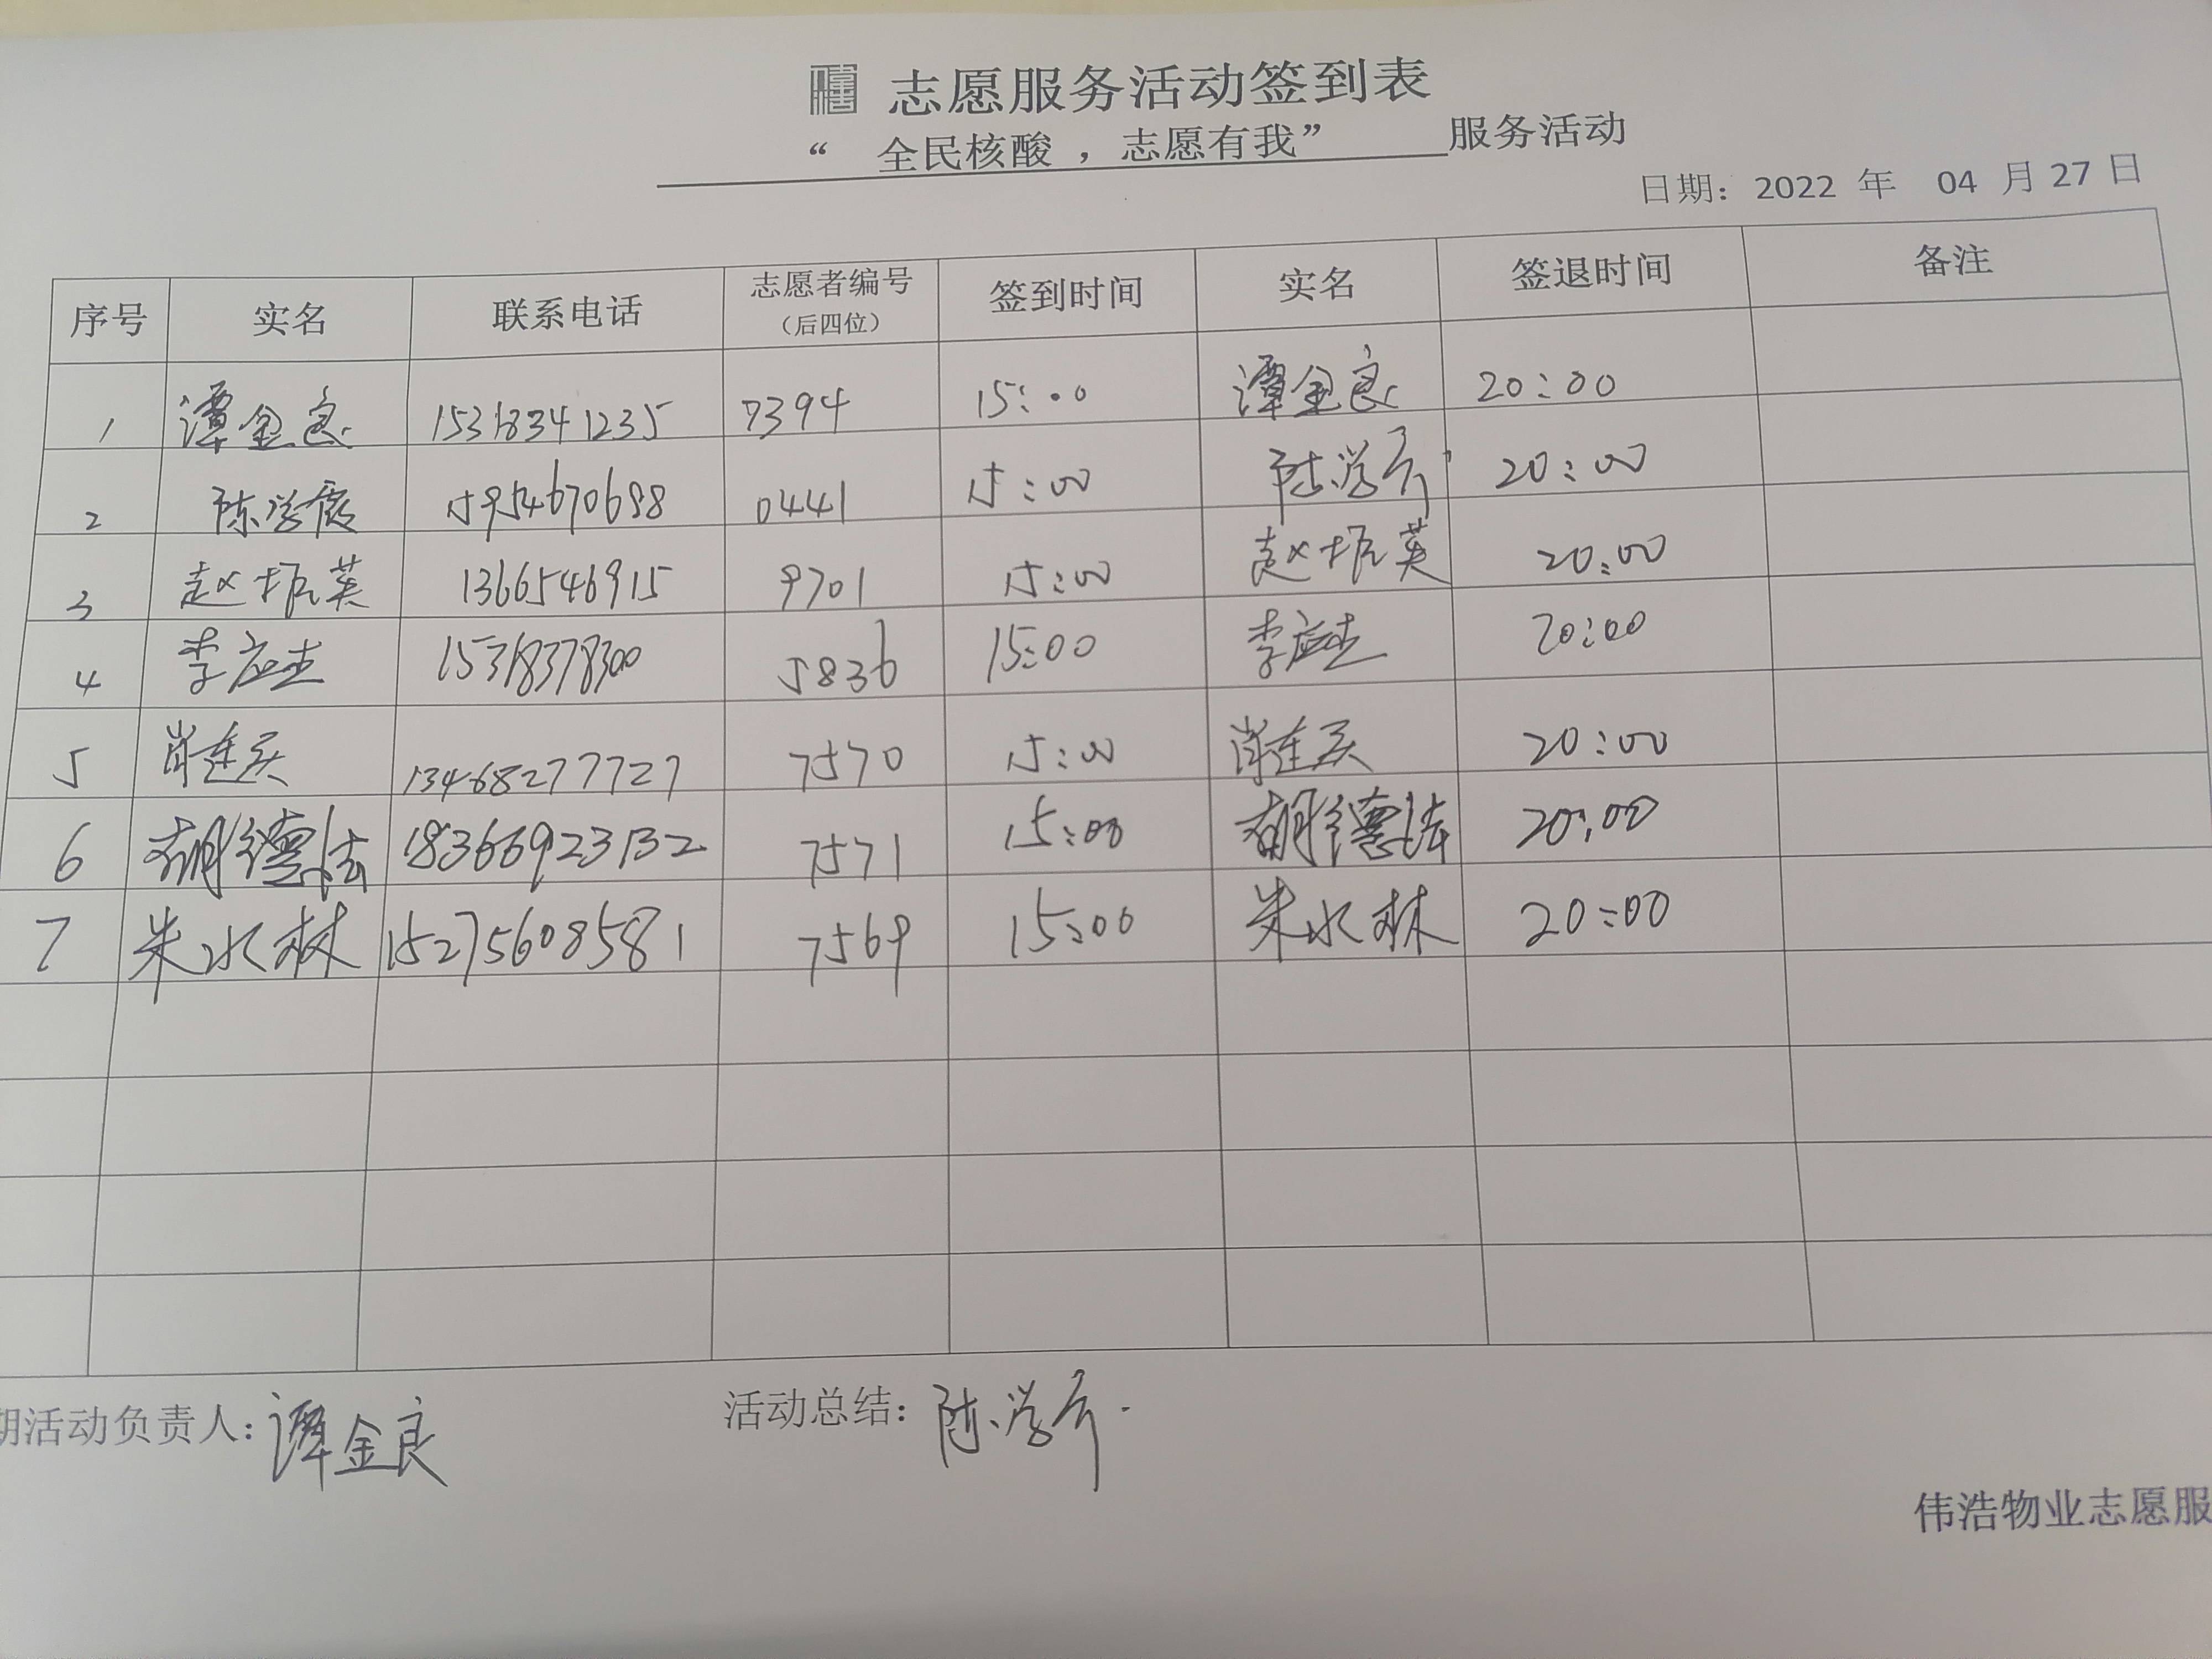 志愿服务活动签到表
“ 全民核酸 ，志愿有我” 服务活动
日期: 2022 年 04 月 27 日
序号 实名 联系电话 志愿者编号（后四位） 签到时间 实名 签退时间 备注
1 谭金良 15318341235 7394 15:00 谭金良 20:00
2 陈学 15954670688 0441 15:00 陈学 20:00
3 赵振英 1366546915 9701 15:00 赵振英 20:00
4 李应杰 15318378300 5836 15:00 李应杰 20:00
5 肖连 13468277727 7570 15:00 肖连 20:00
6 胡德法 18366923132 7571 15:00 胡德法 20:00
7 朱水林 15275608581 7569 15:00 朱水林 20:00
期活动负责人: 谭金良 活动总结: 陈学
伟浩物业志愿服